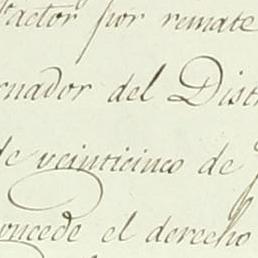 Factor por remate
rnador del Dist
de veinticinco de
oncede el derecho